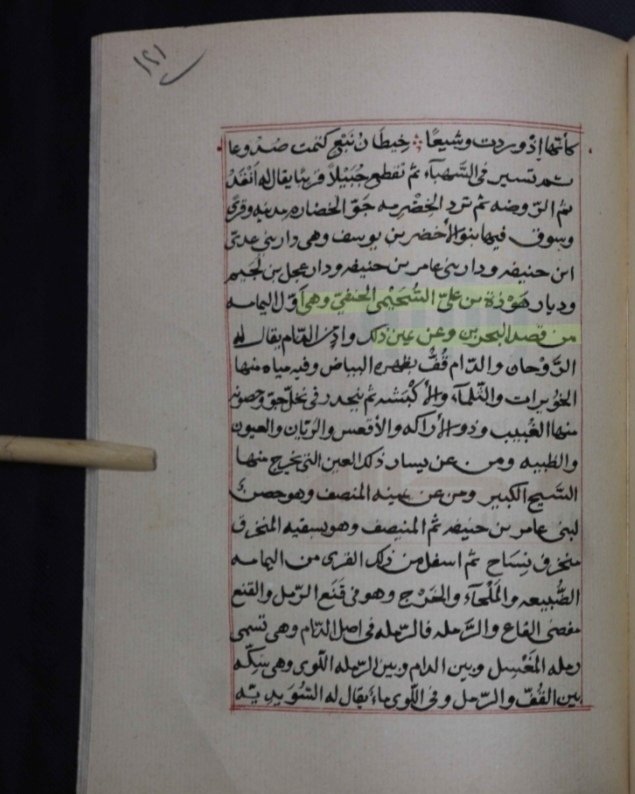 ١٢١
كأنها إذ وردت وشيعًا خيطان نبع كتمت صدوعا
ثم تسير في الشهباء ثم تقطع جبيلاً قريبًا يقال له أنقد
ثم الروضه ثم ترد الخضرمه جوّ الخضارم مدينه وقرى
وسوق فيها بنو الأخضر بن يوسف وهي دار بني عدي
ابن حنيفه ودار بني عامر بن حنيفه ودار عجل بن لجيم
وديار هوذة بن عليّ السحيمي الحنفيّ وهي أول اليمامه
من قصد البحرين وعن يمين ذلك وادٍ من الدام يقال له
الروحان والدام قفّ بظهره البياض وفيه مياه منها
والثلماء ثم ينحدر في نخل جوّ وحصونه
منها الغبيب وذو الأراكه والأقعس والريان والعيون
والظبيه ومن عن يسار ذلك العين التي يخرج منها
السيح الكبير ومن عن يمينه المنصف وهو حصن
لبني عامر بن حنيفه ثم المنيصف وهو يسقيه المنخرق
منخرق نساح ثم اسفل من ذلك القرى من اليمامه
الضبيعه والملحاء والخرج وهو في قنع الرمل والقنع
مفضى القاع والرمله فالرمله في اصل الدام وهي تسمى
رمله المغسل وبين الدام وبين الرمله اللوى وهي سكه
بين القفّ والرمل وفي اللوى ماء يقال له